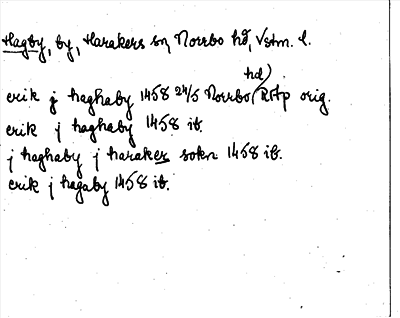 Hagby, by, Harakers sn, Norrbo hd, Vstm. l.
erik j haghaby 1458 24/5 Norrbo (hd) RAp orig.
erik j haghaby 1458 ib.
j haghaby j haraker sokn 1458 ib.
erik j hagaby 1458 ib.